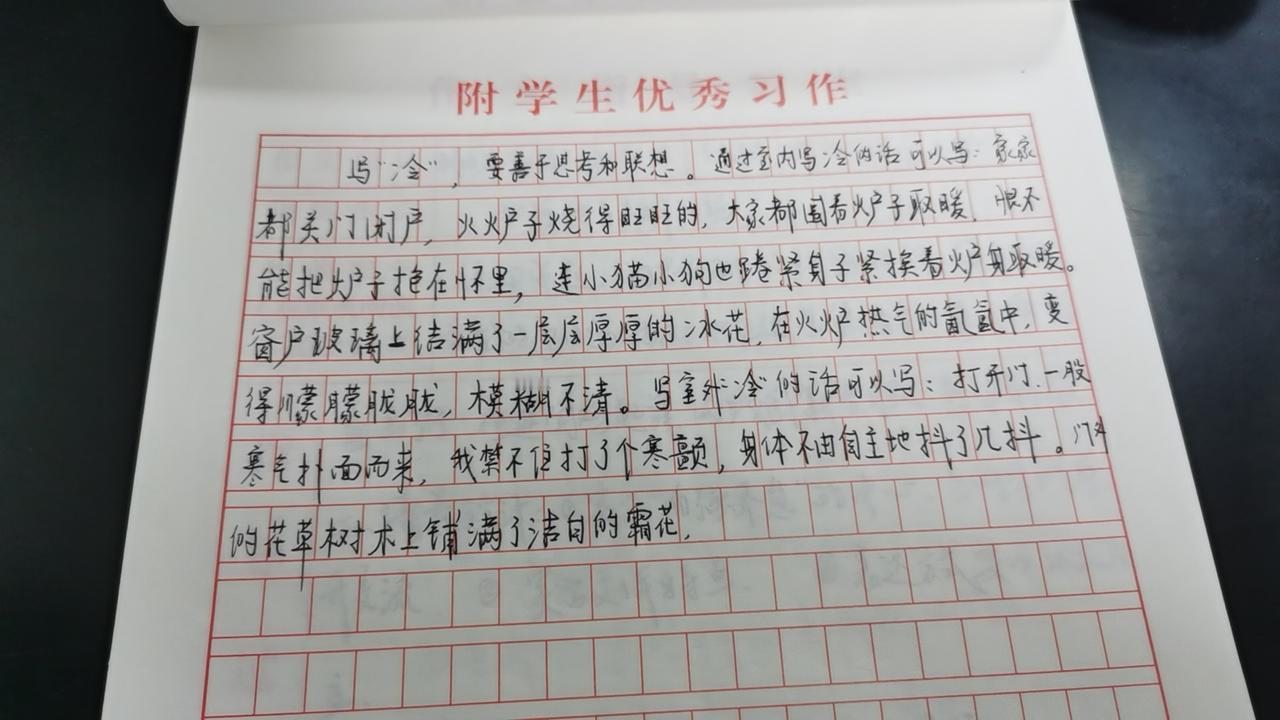 附学生优秀习作
写“冷”，要善于思考和联想。通过室内写冷的话可以写：家家
都关门闭户，火火炉子烧得旺旺的，大家都围着炉子取暖，恨不
能把炉子抱在怀里，连小猫小狗也蜷紧身子紧挨着炉身取暖。
窗户玻璃上结满了一层层厚厚的冰花，在火炉热气的氤氲中，变
得朦朦胧胧，模糊不清。写室外冷的话可以写：打开门，一股
寒气扑面而来，我禁不住打了个寒颤，身体不由自主地抖了几抖。门外
的花草树木上铺满了洁白的霜花，